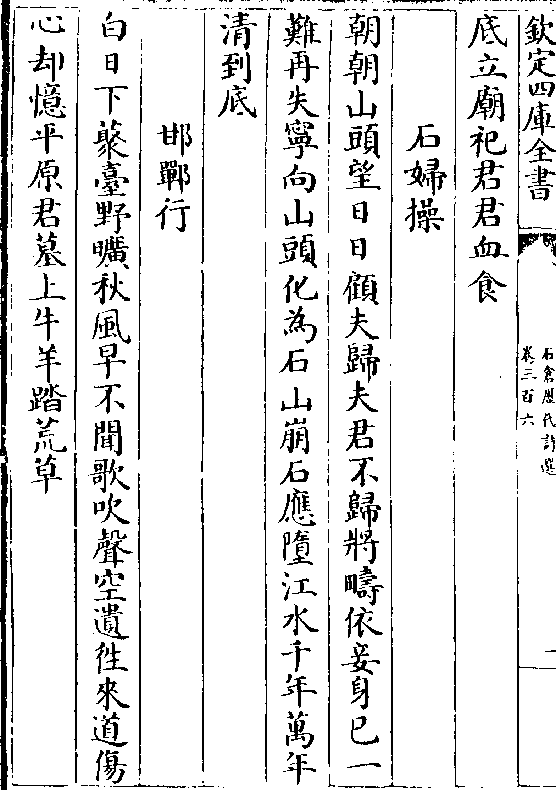 欽定四庫全書
石倉歷代詩選
卷三百六
一
底立廟祀君君血食
石婦操
朝朝山頭望日日顧夫歸夫君不歸將疇依妾身已一
難再失寧向山頭化為石山崩石應墮江水千年萬年
清到底
邯鄲行
白日下藂臺野曠秋風早不聞歌吹聲空遺徃來道傷
心却憶平原君墓上牛羊踏荒草